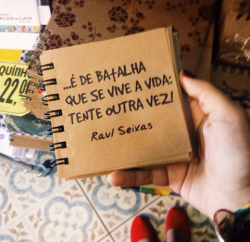 ...É DE BATALHA
QUE SE VIVE A VIDA:
TENTE OUTRA VEZ!
Raul Seixas
QUINH
22,